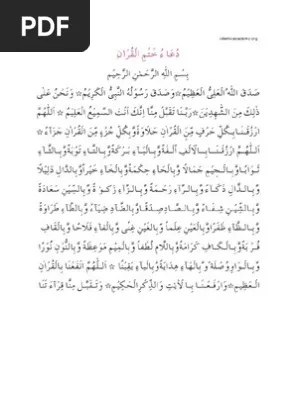 PDF
دُعَاءُ خَتْمِ الْقُرْاٰنِ
بِسْمِ اللّٰهِ الرَّحْمٰنِ الرَّحِيْمِ
صَدَقَ اللّٰهُ الْعَلِيُّ الْعَظِيْمُ ۞ وَصَدَقَ رَسُوْلُهُ النَّبِيُّ الْكَرِيْمُ ۞ وَنَحْنُ عَلٰى
ذٰلِكَ مِنَ الشّٰهِدِيْنَ ۞ رَبَّنَا تَقَبَّلْ مِنَّا اِنَّكَ اَنْتَ السَّمِيْعُ الْعَلِيْمُ ۞ اَللّٰهُمَّ
ارْزُقْنَا بِكُلِّ حَرْفٍ مِّنَ الْقُرْاٰنِ حَلَاوَةً وَّبِكُلِّ جُزْءٍ مِّنَ الْقُرْاٰنِ جَزَاءً ۞
اَللّٰهُمَّ ارْزُقْنَا بِالْاَلِفِ اُلْفَةً وَّبِالْبَاءِ بَرَكَةً وَّبِالتَّاءِ تَوْبَةً وَّبِالثَّاءِ
ثَوَابًا وَّبِالْجِيْمِ جَمَالًا وَّبِالْحَاءِ حِكْمَةً وَّبِالْخَاءِ خَيْرًا وَّبِالدَّالِ دَلِيْلًا
وَّبِالذَّالِ ذَكَاءً وَّبِالرَّاءِ رَحْمَةً وَّبِالزَّاءِ زَكٰوةً وَّبِالسِّيْنِ سَعَادَةً
وَّبِالشِّيْنِ شِفَاءً وَّبِالصَّادِ صِدْقًا وَّبِالضَّادِ ضِيَاءً وَّبِالطَّاءِ طَرَاوَةً
وَّبِالظَّاءِ ظَفَرًا وَّبِالْعَيْنِ عِلْمًا وَّبِالْغَيْنِ غِنًى وَّبِالْفَاءِ فَلَاحًا وَّبِالْقَافِ
قُرْبَةً وَّبِالْكَافِ كَرَامَةً وَّبِاللَّامِ لُطْفًا وَّبِالْمِيْمِ مَوْعِظَةً وَّبِالنُّوْنِ نُوْرًا
وَّبِالْوَاوِ وُصْلَةً وَّبِالْهَاءِ هِدَايَةً وَّبِالْيَاءِ يَقِيْنًا ۞ اَللّٰهُمَّ انْفَعْنَا بِالْقُرْاٰنِ
الْعَظِيْمِ ۞ وَارْفَعْنَا بِالْاٰيٰتِ وَالذِّكْرِ الْحَكِيْمِ ۞ وَتَقَبَّلْ مِنَّا قِرَاءَتَنَا